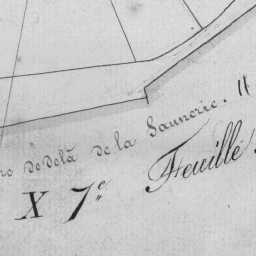 de delà de la Saunerie.
X 7e Feuille